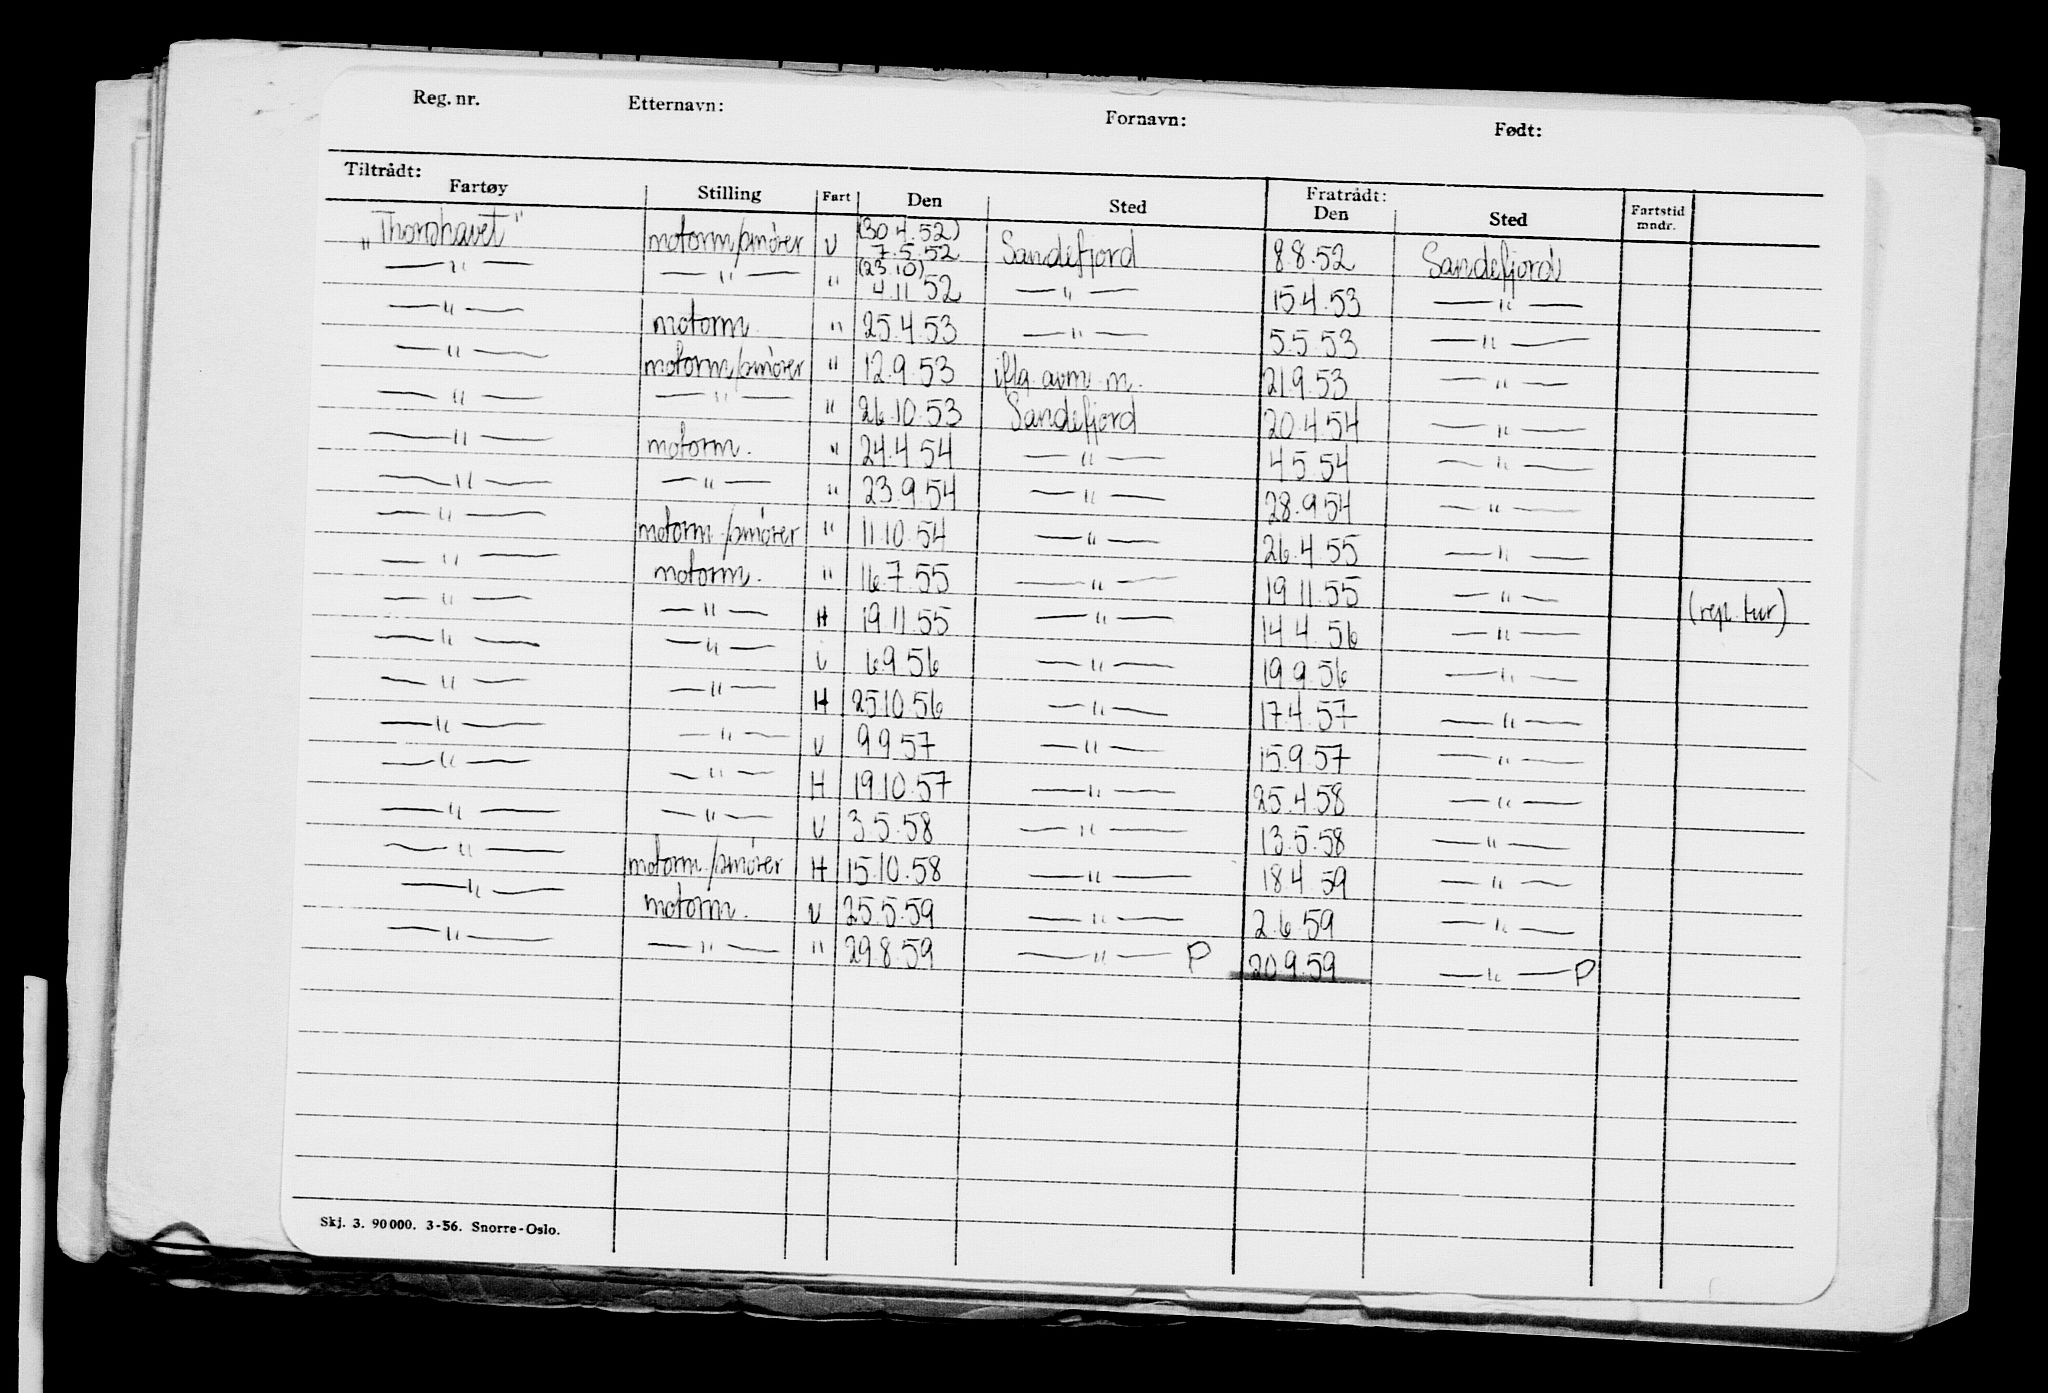 Reg. nr. Etternavn: Fornavn: Født:
Tiltrådt: Fratrådt:
Fartøy Stilling Fart Den Sted Den Sted Fartstid mndr.
„Thorshavet" motorm/smører U (30.4.52) 7.5.52 Sandefjord 8.8.52 Sandefjord
—"— —"— " (23.10) 4.11.52 —"— 15.4.53 —"—
—"— motorm. " 25.4.53 —"— 5.5.53 —"—
—"— motorm/smører " 12.9.53 iflg. avm. m. 21.9.53 —"—
—"— —"— " 26.10.53 Sandefjord 20.4.54 —"—
—"— motorm. " 24.4.54 —"— 4.5.54 —"—
—"— —"— " 23.9.54 —"— 28.9.54 —"—
—"— motorm./smører " 11.10.54 —"— 26.4.55 —"—
—"— motorm. " 16.7.55 —"— 19.11.55 —"— (rep. tur)
—"— —"— H 19.11.55 —"— 14.4.56 —"—
—"— —"— U 6.9.56 —"— 19.9.56 —"—
—"— —"— H 25.10.56 —"— 17.4.57 —"—
—"— —"— U 9.9.57 —"— 15.9.57 —"—
—"— —"— H 19.10.57 —"— 25.4.58 —"—
—"— —"— U 3.5.58 —"— 13.5.58 —"—
—"— motorm./smører H 15.10.58 —"— 18.4.59 —"—
—"— motorm. U 25.5.59 —"— 2.6.59 —"—
—"— —"— " 29.8.59 —"— P 20.9.59 —"— P
Skj. 3. 90000. 3-56. Snorre-Oslo.